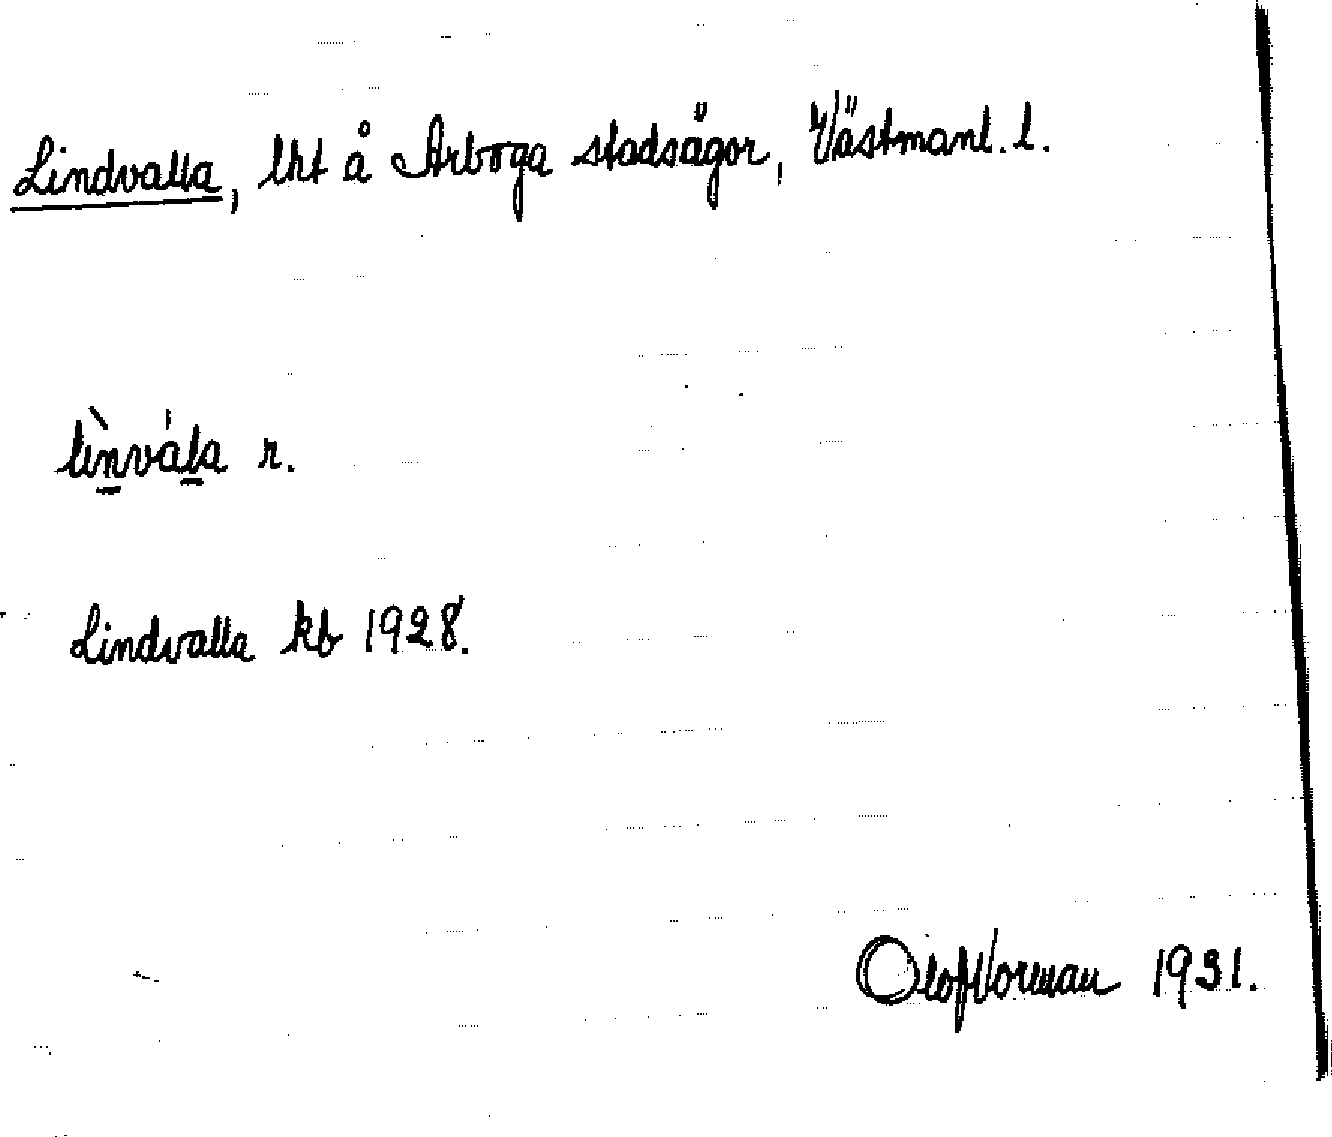 Lindvalla, lht å Arboga stadsägor, Västmanl. l.
lìn̲vál̲a n.
Lindvalla kb 1928.
Olof Norman 1931.